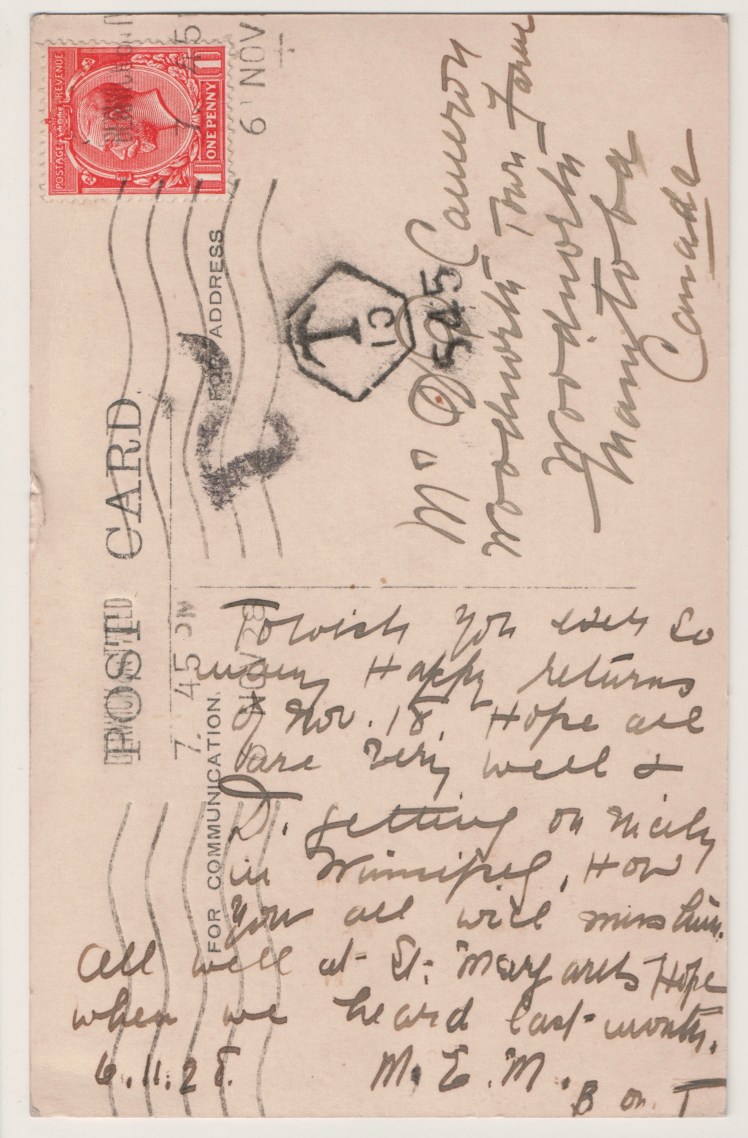 POSTAGE REVENUE
ONE PENNY
7. 45
6 NOV
POST CARD
FOR COMMUNICATION.
FOR ADDRESS
T
545
Mr D Cameron
Woodnorth Town Farm
Woodnorth
Manitoba
Canada
7. 45 PM
NOV 28
To wish you ever so
many Happy returns
of Nov. 18. Hope all
are very well &
D. getting on nicely
in Winnipeg, How
you all will miss him.
All well at St. Margarets Hope
when we heard last month.
6.11.28. M. E. M.
B on T